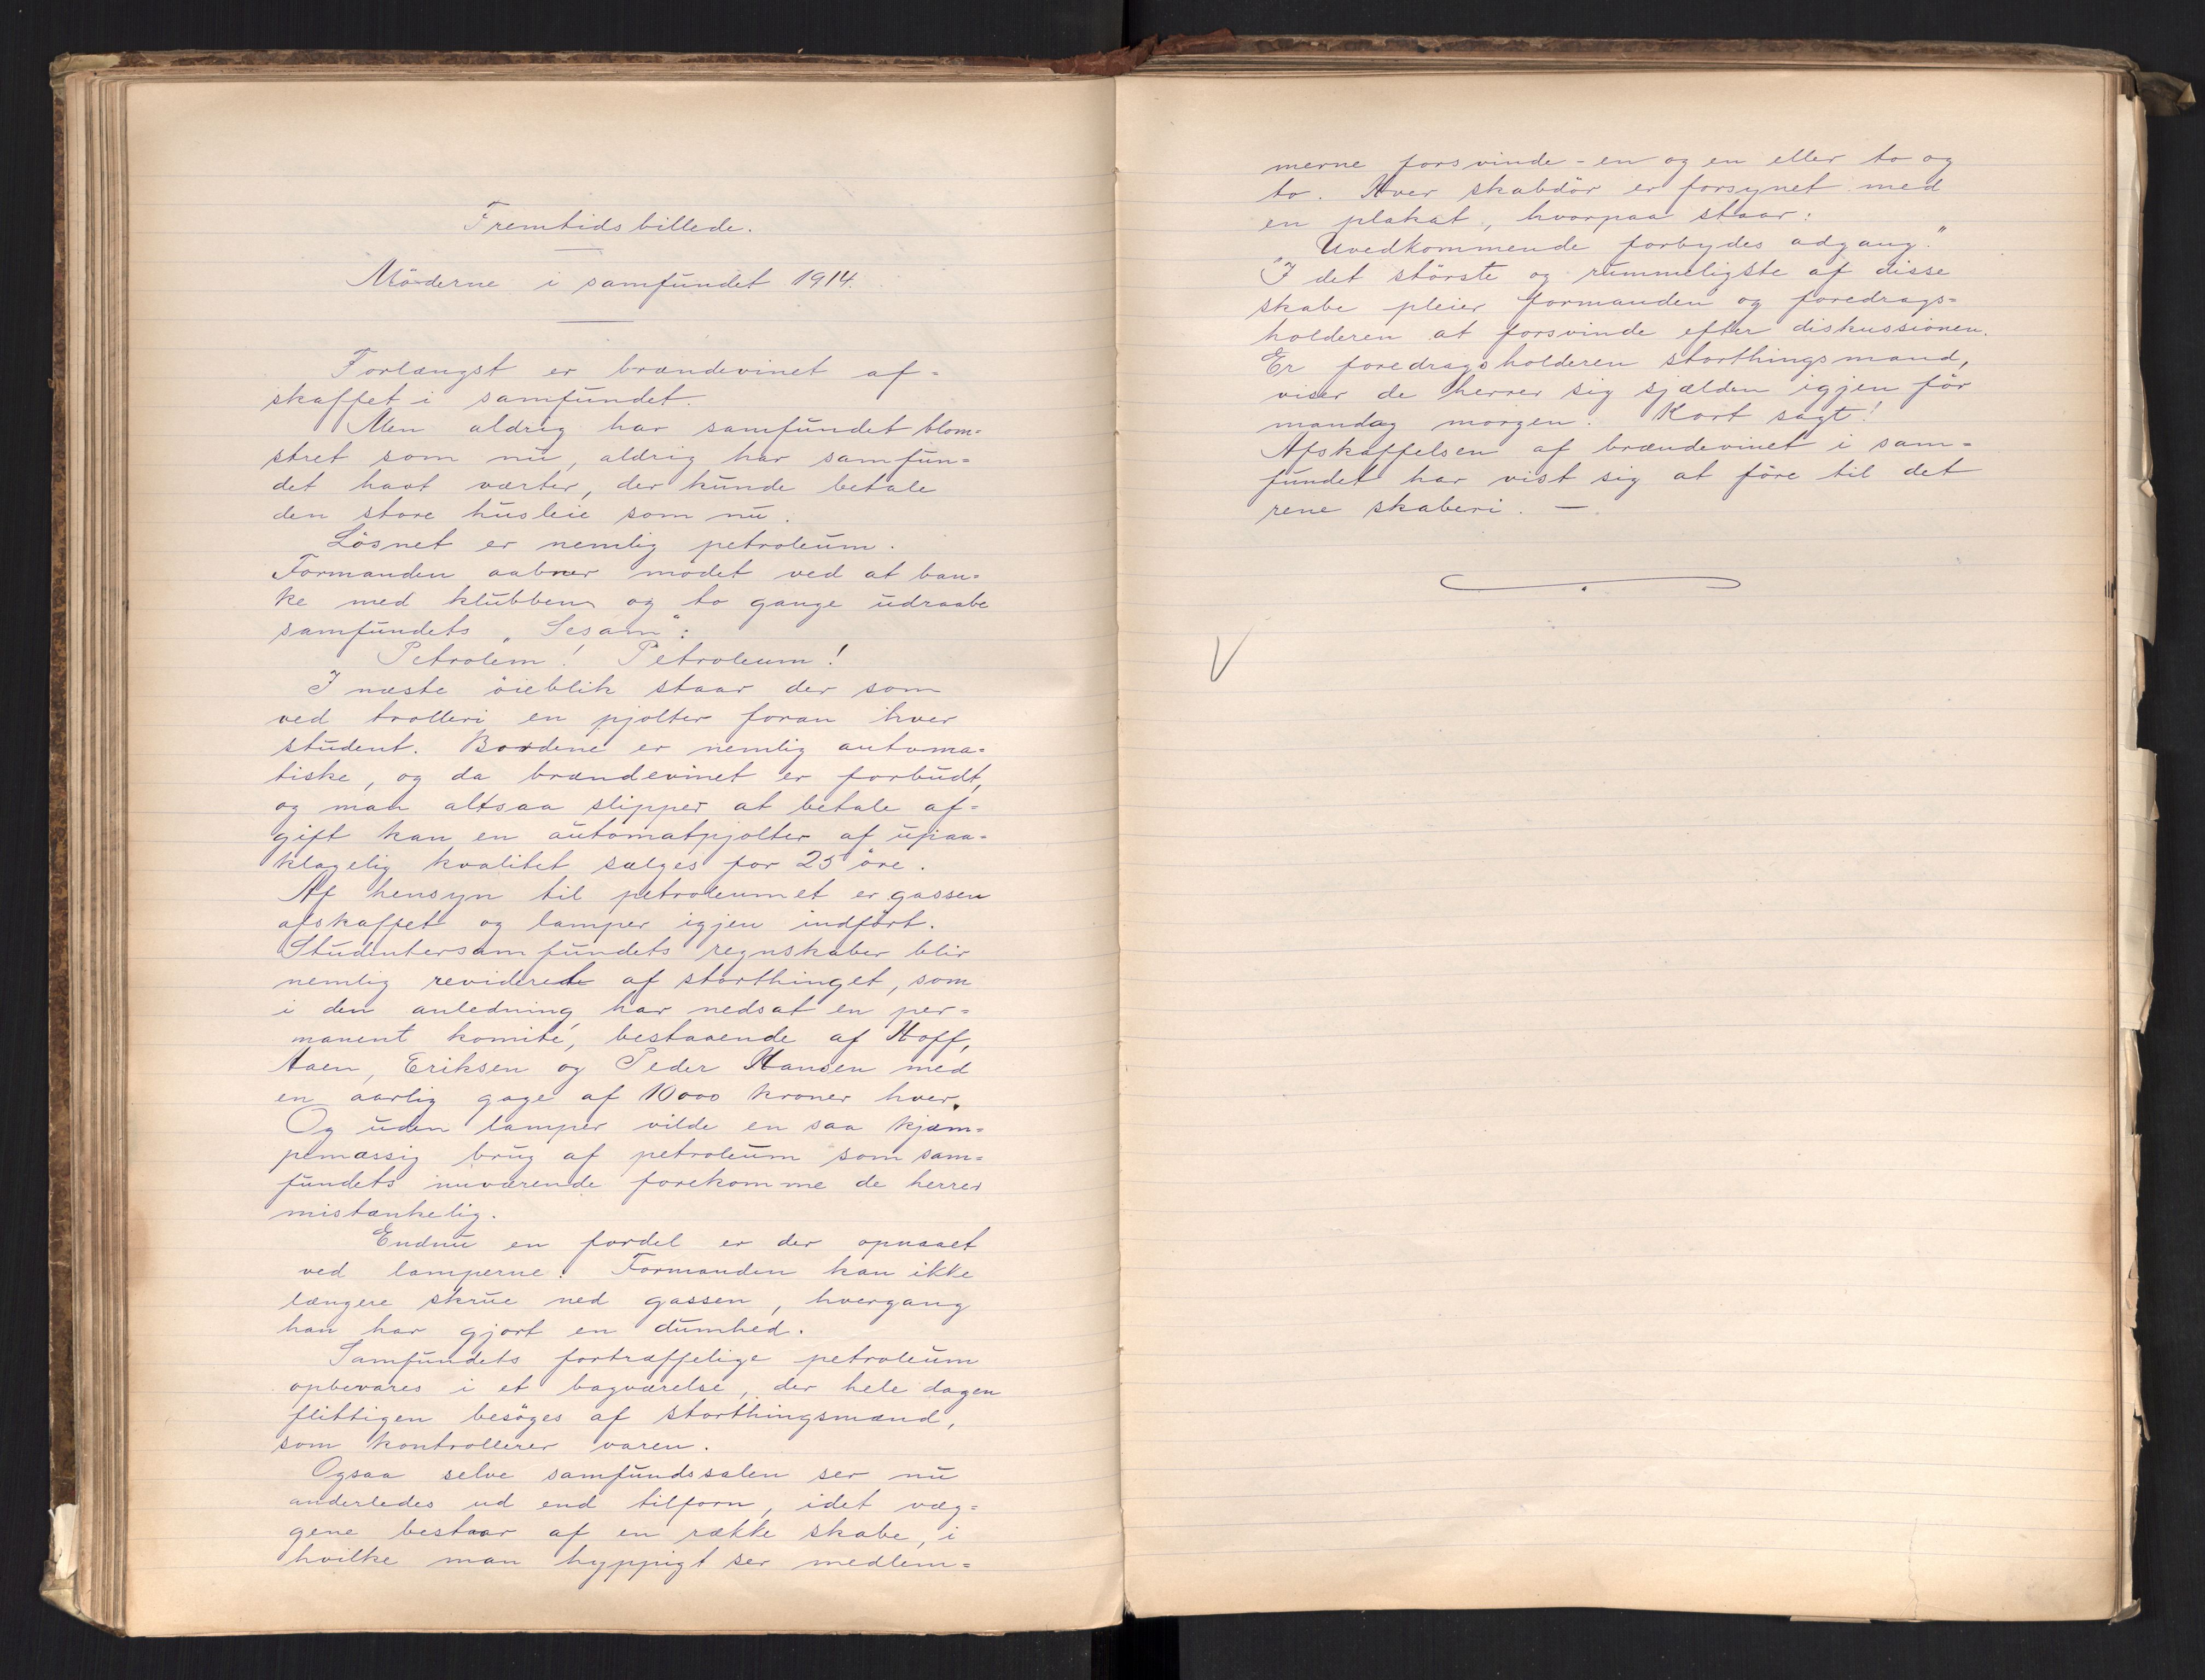 Fremtidsbillede.
Möderne i samfundet 1914.
Forlængst er brændevinet af=
skaffet i samfundet.
Men aldrig har samfundet blom=
stret som nu, aldrig har samfun=
det havt værter, der kunde betale
den store husleie som nu.
Lösnet er nemlig petroleum.
Formanden aabner mödet ved at ban=
ke med klubben og to gange udraabe
samfundets „Sesam":
Petrolem! Petroleum!
I næste öieblik staar der som
ved trolleri en pjolter foran hver
student. Bordene er nemlig automa=
tiske, og da brændevinet er forbudt,
og man altsaa slipper at betale af=
gift kan en automatpjolter af upaa=
klagelig kvalitet sælges for 25 öre.
Af hensyn til petroleumet er gassen
afskaffet og lamper igjen indfört.
Studentersamfundets regnskaber blir
nemlig reviderede af storthinget, som
i den anledning har nedsat en per=
manent komité, bestaaende af Hoff,
Aaen, Eriksen og Peder Hansen med
en aarlig gage af 10000 kroner hver.
Og uden lamper vilde en saa kjæm=
pemæssig brug af petroleum som sam=
fundets nuværende forekomme de herrer
mistænkelig.
Endnu en fordel er der opnaaet
ved lamperne: Formanden kan ikke
længere skrue ned gassen, hvergang
han har gjort en dumhed.
Samfundets fortræffelige petroleum
opbevares i et bagværelse, der hele dagen
flittigen besöges af storthingsmænd,
som kontrollerer varen.
Ogsaa selve samfundssalen ser nu
anderledes ud end tilforn, idet væg=
gene bestaar af en række skabe, i
hvilke man hyppigt ser medlem=
merne forsvinde - en og en eller to og
to. Hver skabdör er forsynet med
en plakat, hvorpaa staar:
"Uvedkommende forbydes adgang."
I det störste og rummeligste af disse
skabe pleier formanden og foredrags=
holderen at forsvinde efter diskussionen.
Er foredragsholderen storthingsmand,
viser de herrer sig sjælden igjen för
mandag morgen. Kort sagt!
Afskaffelsen af brændevinet i sam=
fundet har vist sig at före til det
rene skaberi. —
V